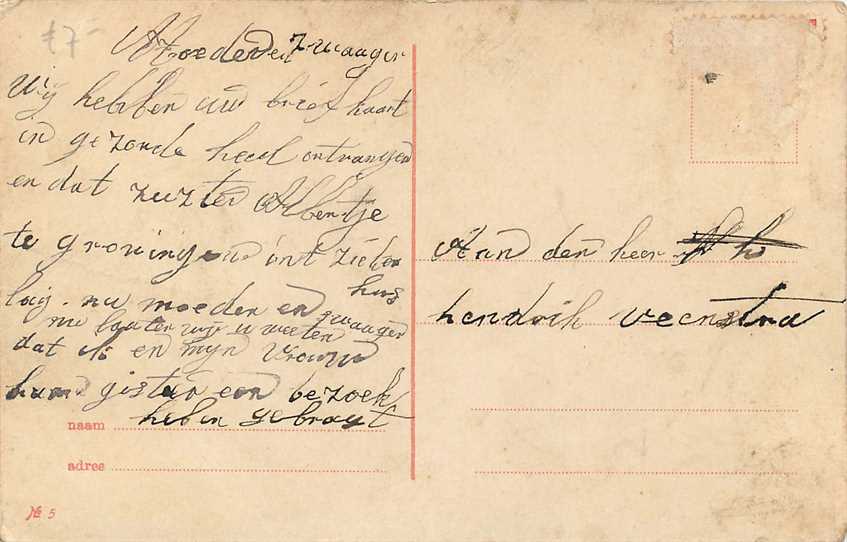 £7-
Moeder en zwaager
Wij hebben uw brief kaart
in gezonde heed ontvangen
en dat zuzter Albertje
te groningen int zieken
huis
laij. nu moeder en zwaager
nu laaten wij u weeten
dat ik en mijn vrouw
haar gistar een bezoek
heben gebragt
naam
adres
№ 5
Aan den heer
hendrik veenstra